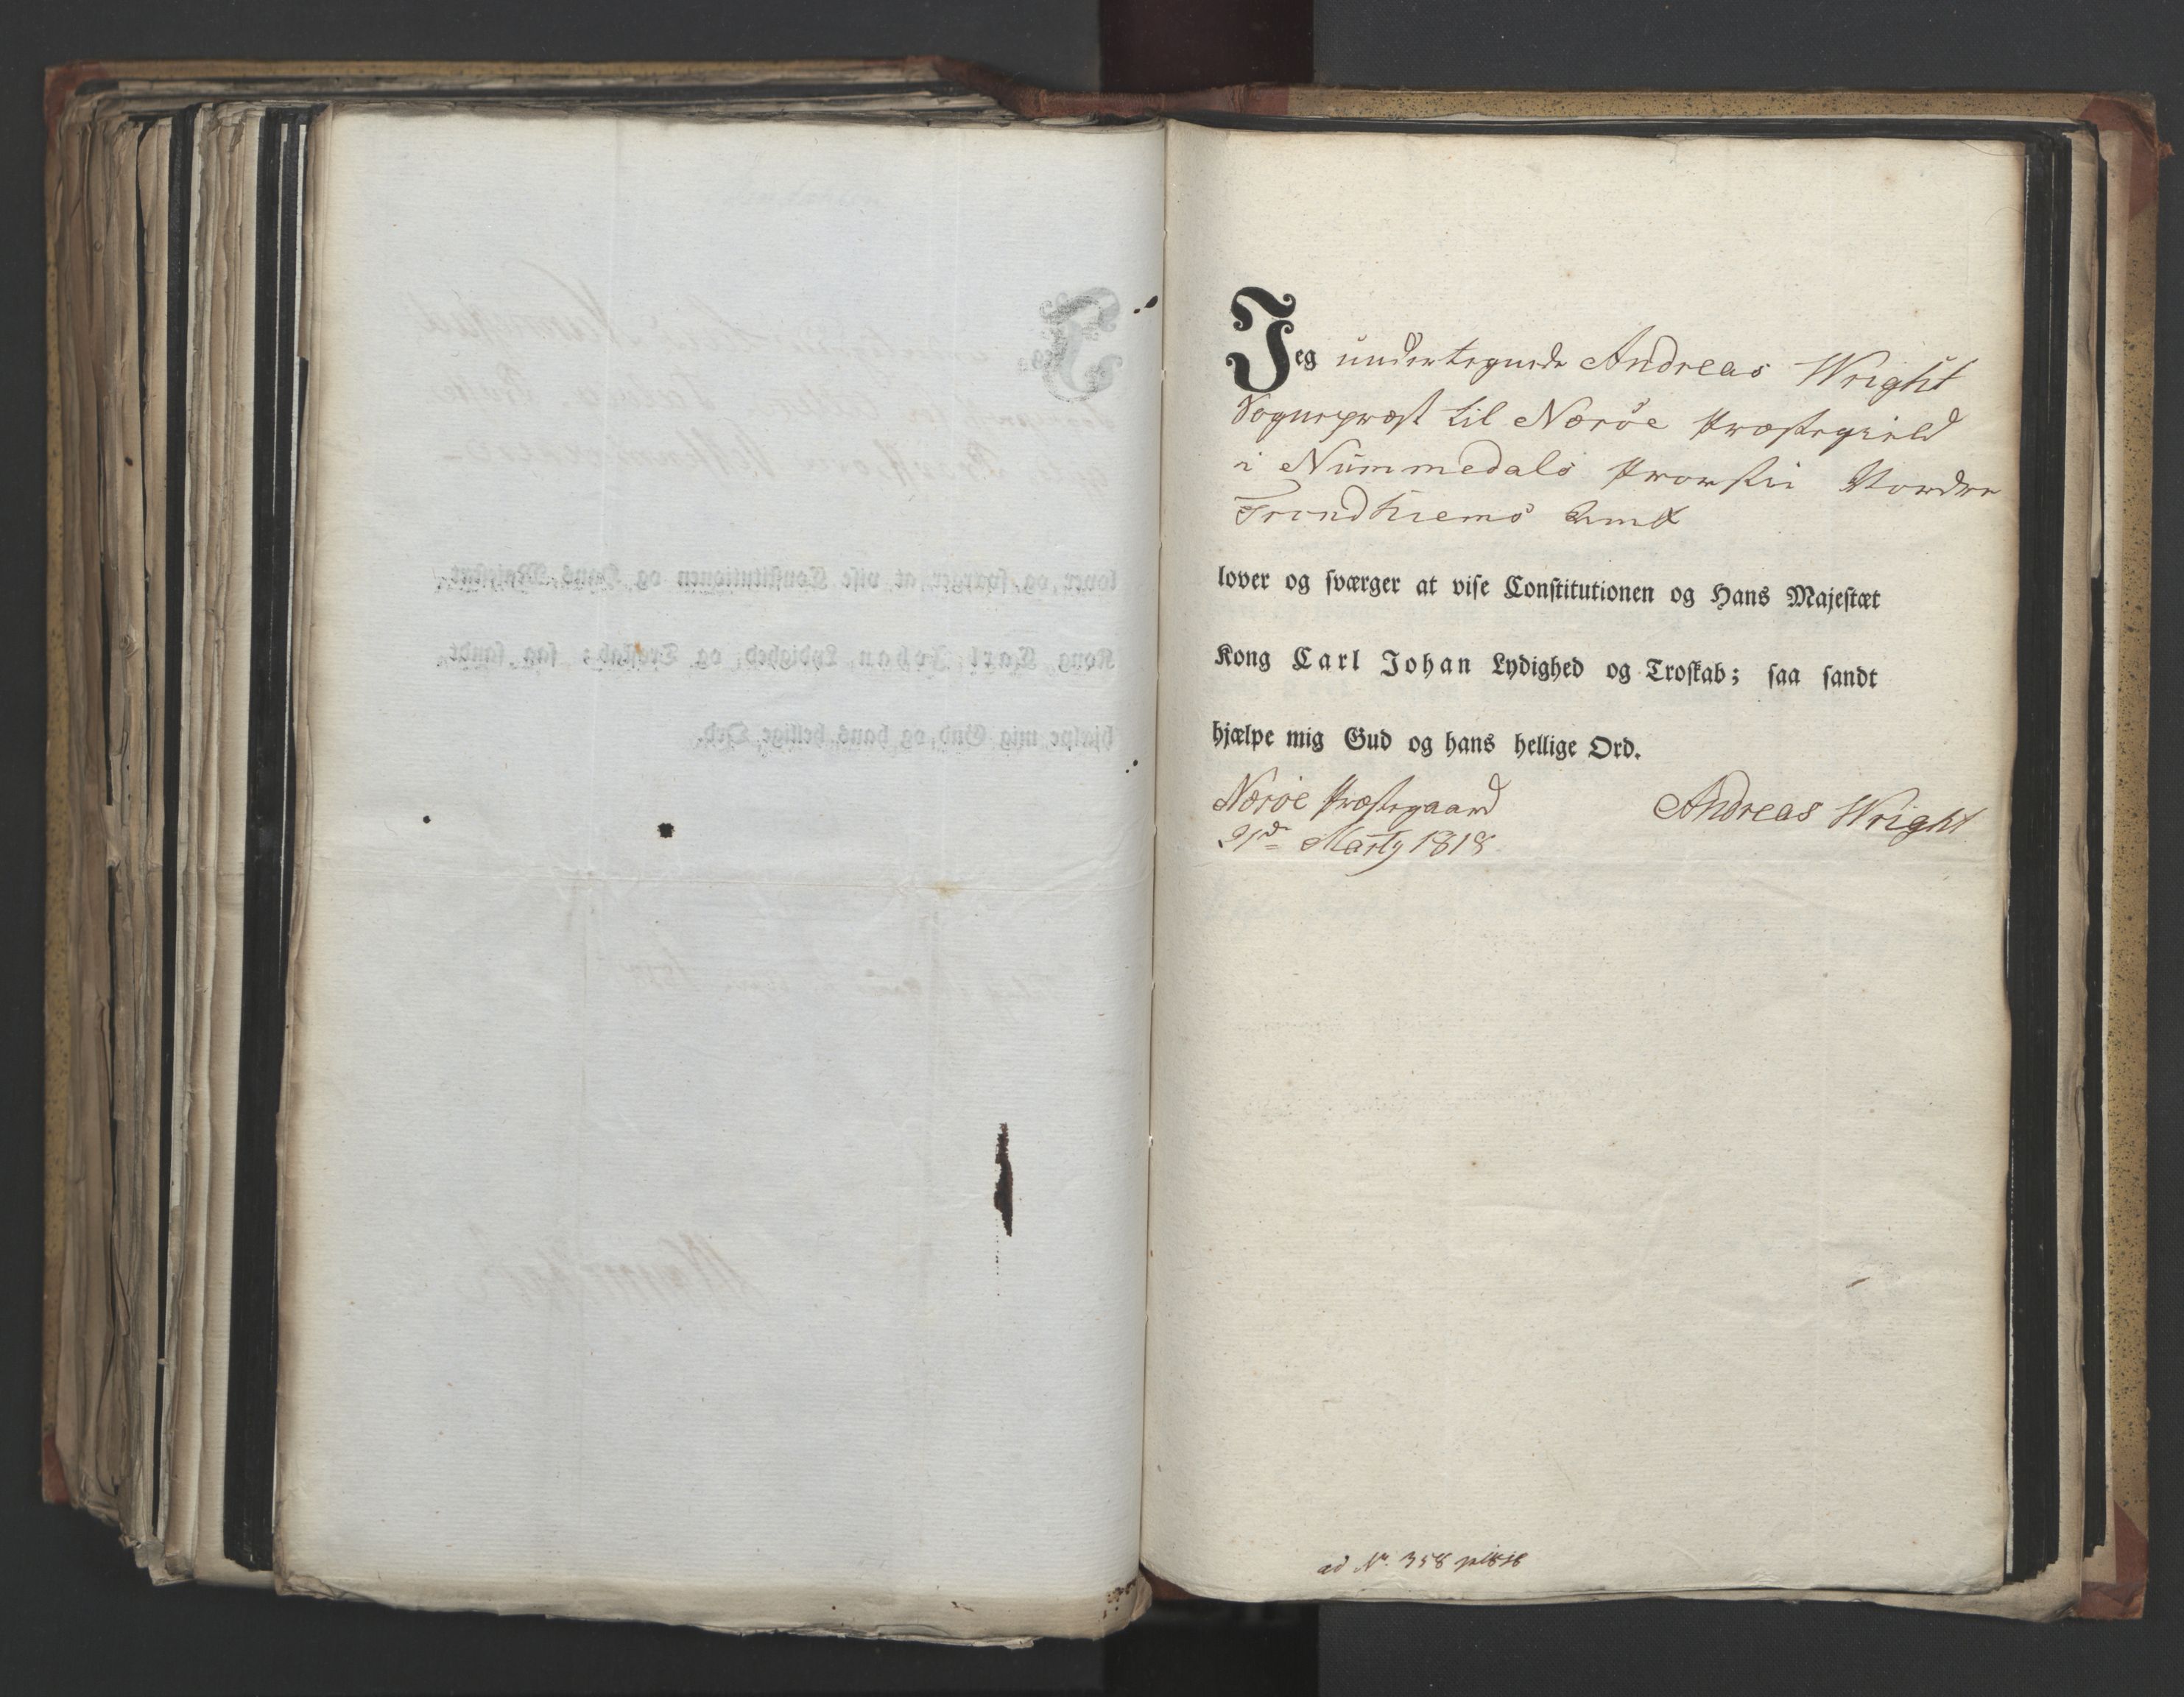 Jeg undertegnede Andreas Wright
Sognepræst til Nærøe Præstegield
i Nummedals Provstie Nordre
Trondhiems Amt
lover og sværger at vise Constitutionen og Hans Majestæt
Kong Carl Johan Lydighed og Troskab; saa sandt
hjælpe mig Gud og hans hellige Ord.
Nærøe Præstegaard
21de Marty 1818
Andreas Wright
ad No. 358 p 1818